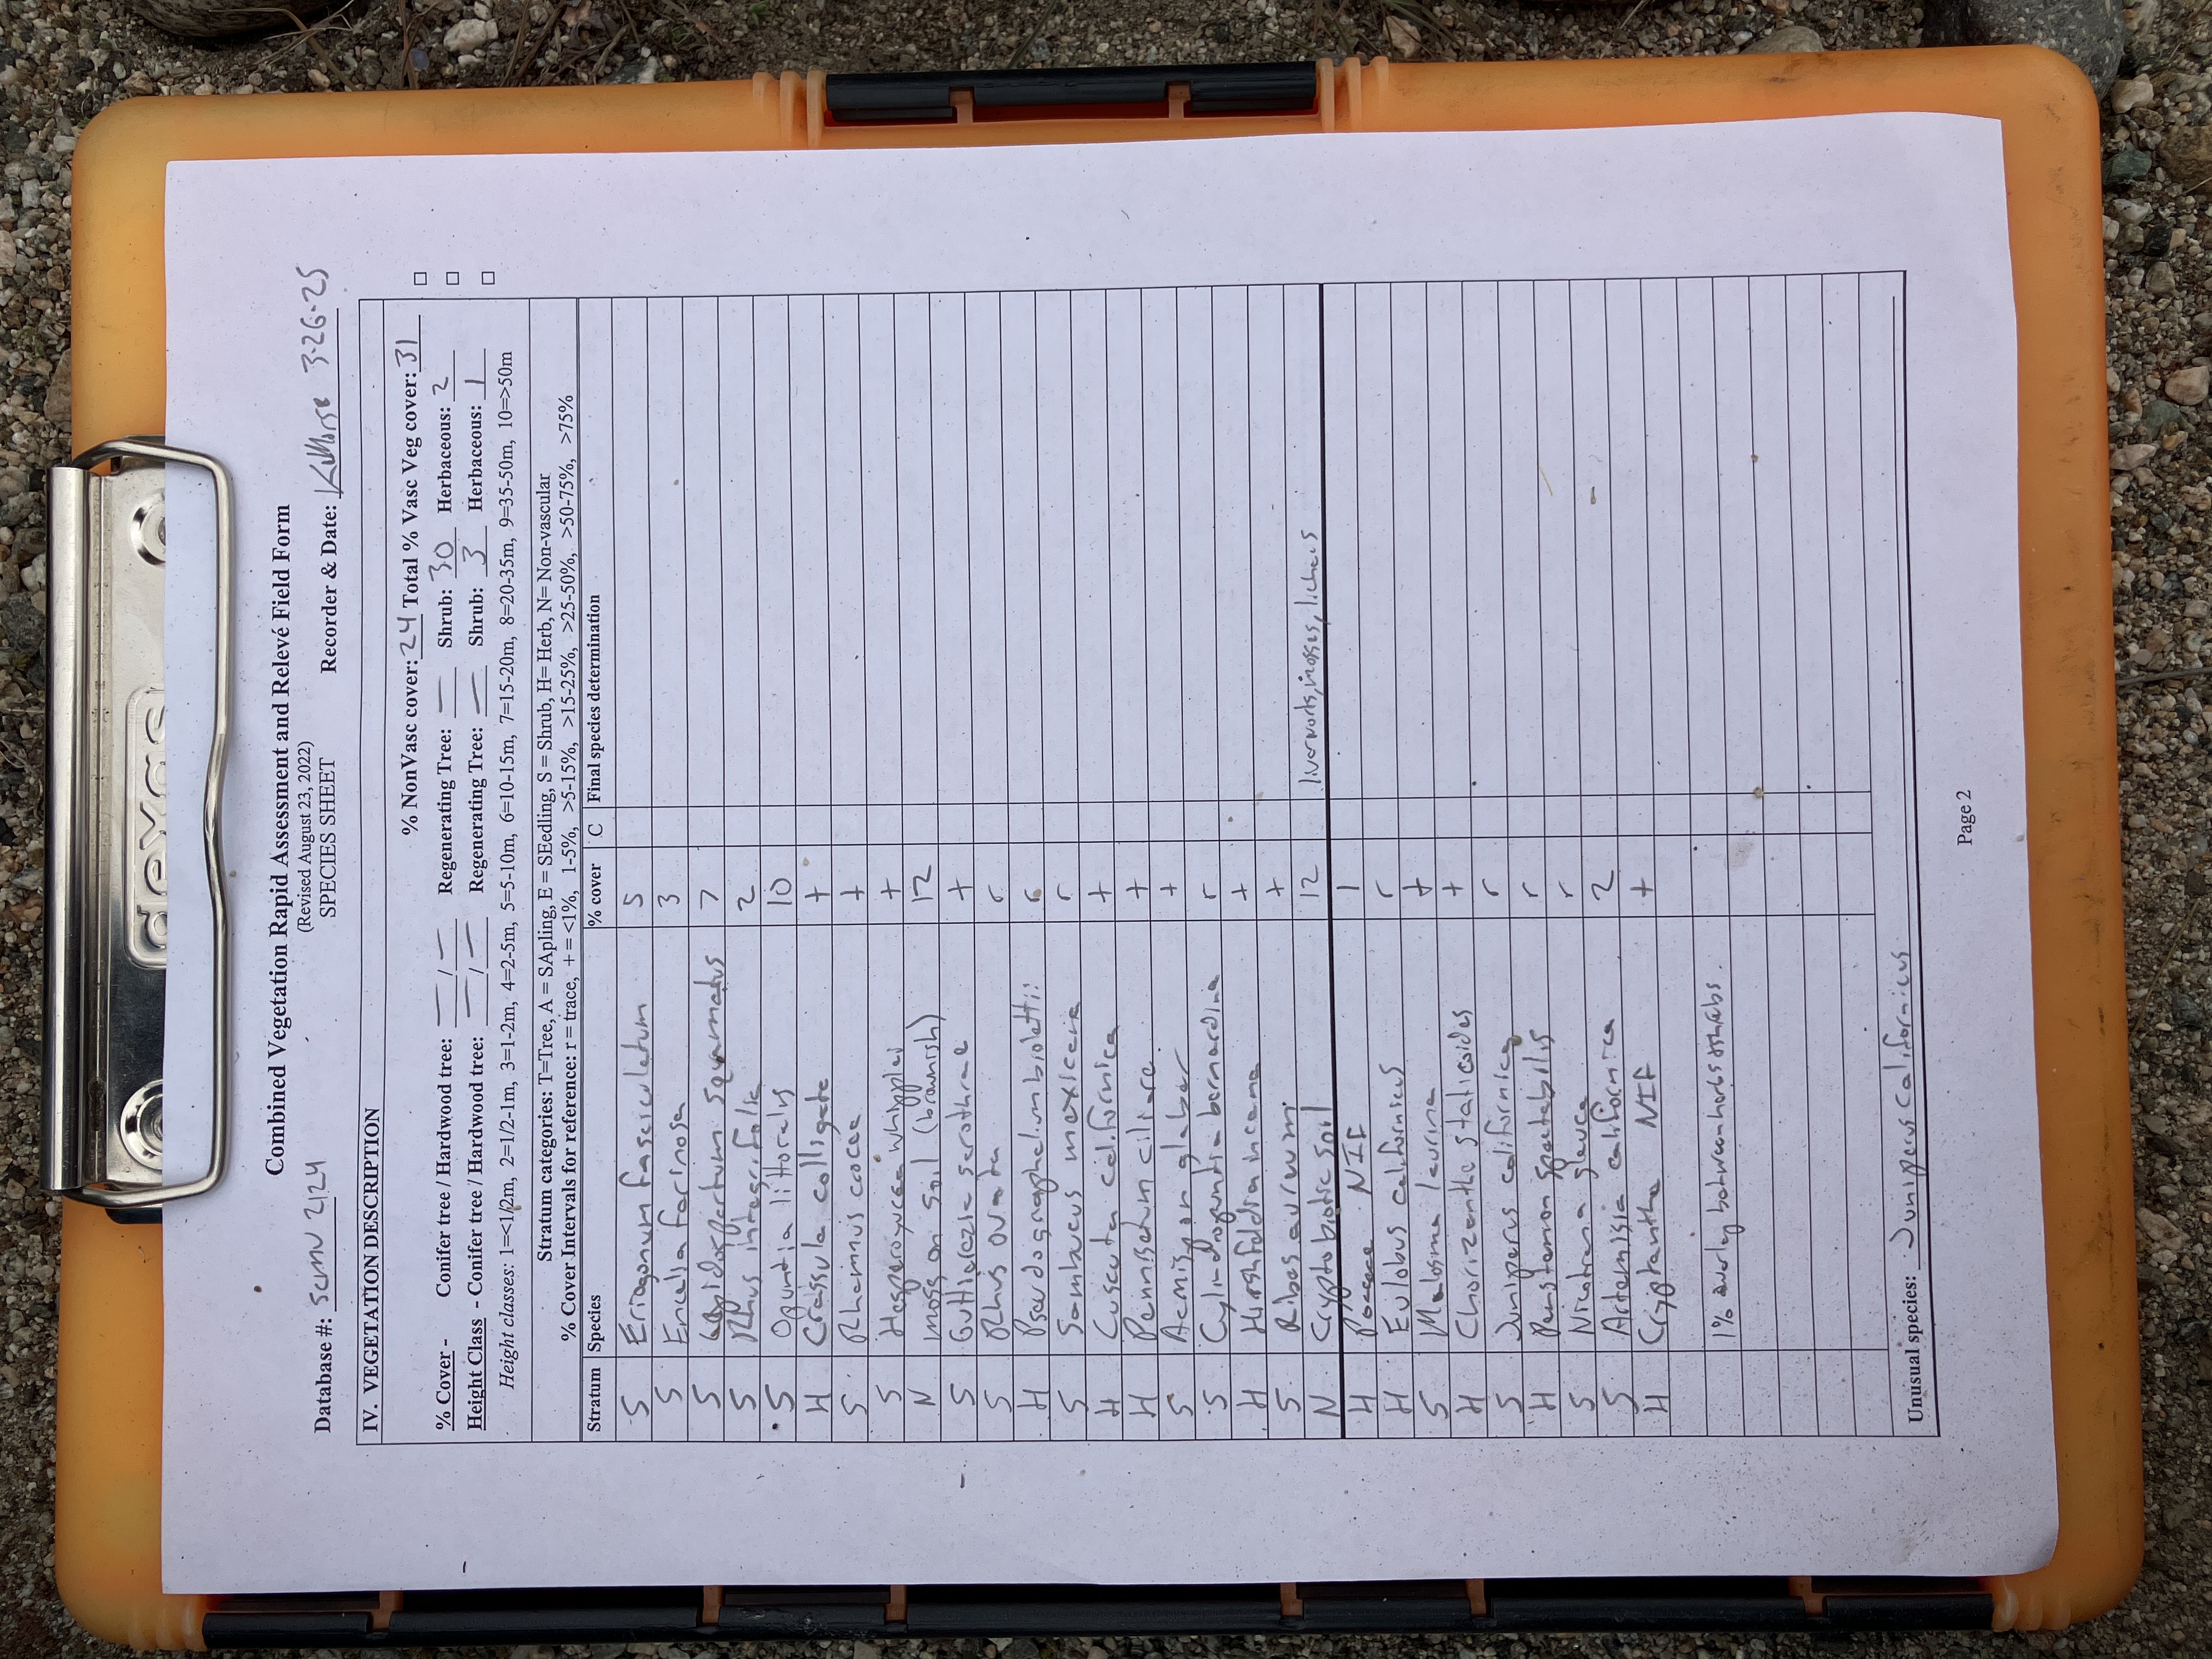 dexas
Combined Vegetation Rapid Assessment and Relevé Field Form
(Revised August 23, 2022)
SPECIES SHEET
Database #: SCMV 2124 Recorder & Date: 3-26-25
IV. VEGETATION DESCRIPTION
% NonVasc cover: 24 Total % Vasc Veg cover: 31
% Cover - Conifer tree / Hardwood tree: — / — Regenerating Tree: — Shrub: 30 Herbaceous: 2
Height Class - Conifer tree / Hardwood tree: — / — Regenerating Tree: — Shrub: 3 Herbaceous: 1
Height classes: 1=<1/2m, 2=1/2-1m, 3=1-2m, 4=2-5m, 5=5-10m, 6=10-15m, 7=15-20m, 8=20-35m, 9=35-50m, 10=>50m
Stratum categories: T=Tree, A = SApling, E = SEedling, S = Shrub, H= Herb, N= Non-vascular
% Cover Intervals for reference: r = trace, + = <1%, 1-5%, >5-15%, >15-25%, >25-50%, >50-75%, >75%
Stratum Species % cover C Final species determination
S Eriogonum fasciculatum 5
S Encelia farinosa 3
S Lepidospartum squamatus 7
S Rhus integrifolia 2
S Opuntia littoralis 10
H Crassula colligata +
S Rhamnus crocea +
S Hesperoyucca whipplei +
N moss on soil (brownish) 12
S Gutierrezia sarothrae +
S Rhus ovata r
H Pseudognaphalium biolettii r
S Sambucus mexicana r
H Cuscuta californica +
H Pennisetum ciliare +
S Acmispon glaber +
S Cylindropuntia bernardina r
H Hirshfeldia incana +
S Ribes aureum +
N Cryptobiotic soil 12 liverworts, mosses, lichens
H Poaceae NIF 1
H Eulobus californicus r
S Malosma laurina +
H Chorizanthe staticoides +
S Juniperus californica r
H Penstemon spectabilis r
S Nicotiana glauca r
S Artemisia californica 2
H Cryptantha NIF +
1% overlap between herbs + shrubs.
Unusual species: Juniperus californicus
Page 2